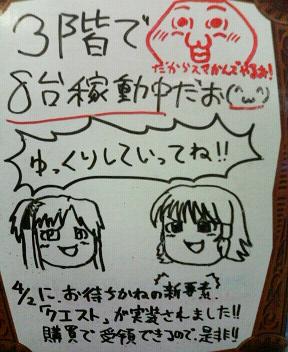 3階で
8台稼動中だお
ゆっくりしていってね!!
4/2に、お待ちかねの新要素、
「クエスト」が実装されました!!
購買で受領できるので、是非!!